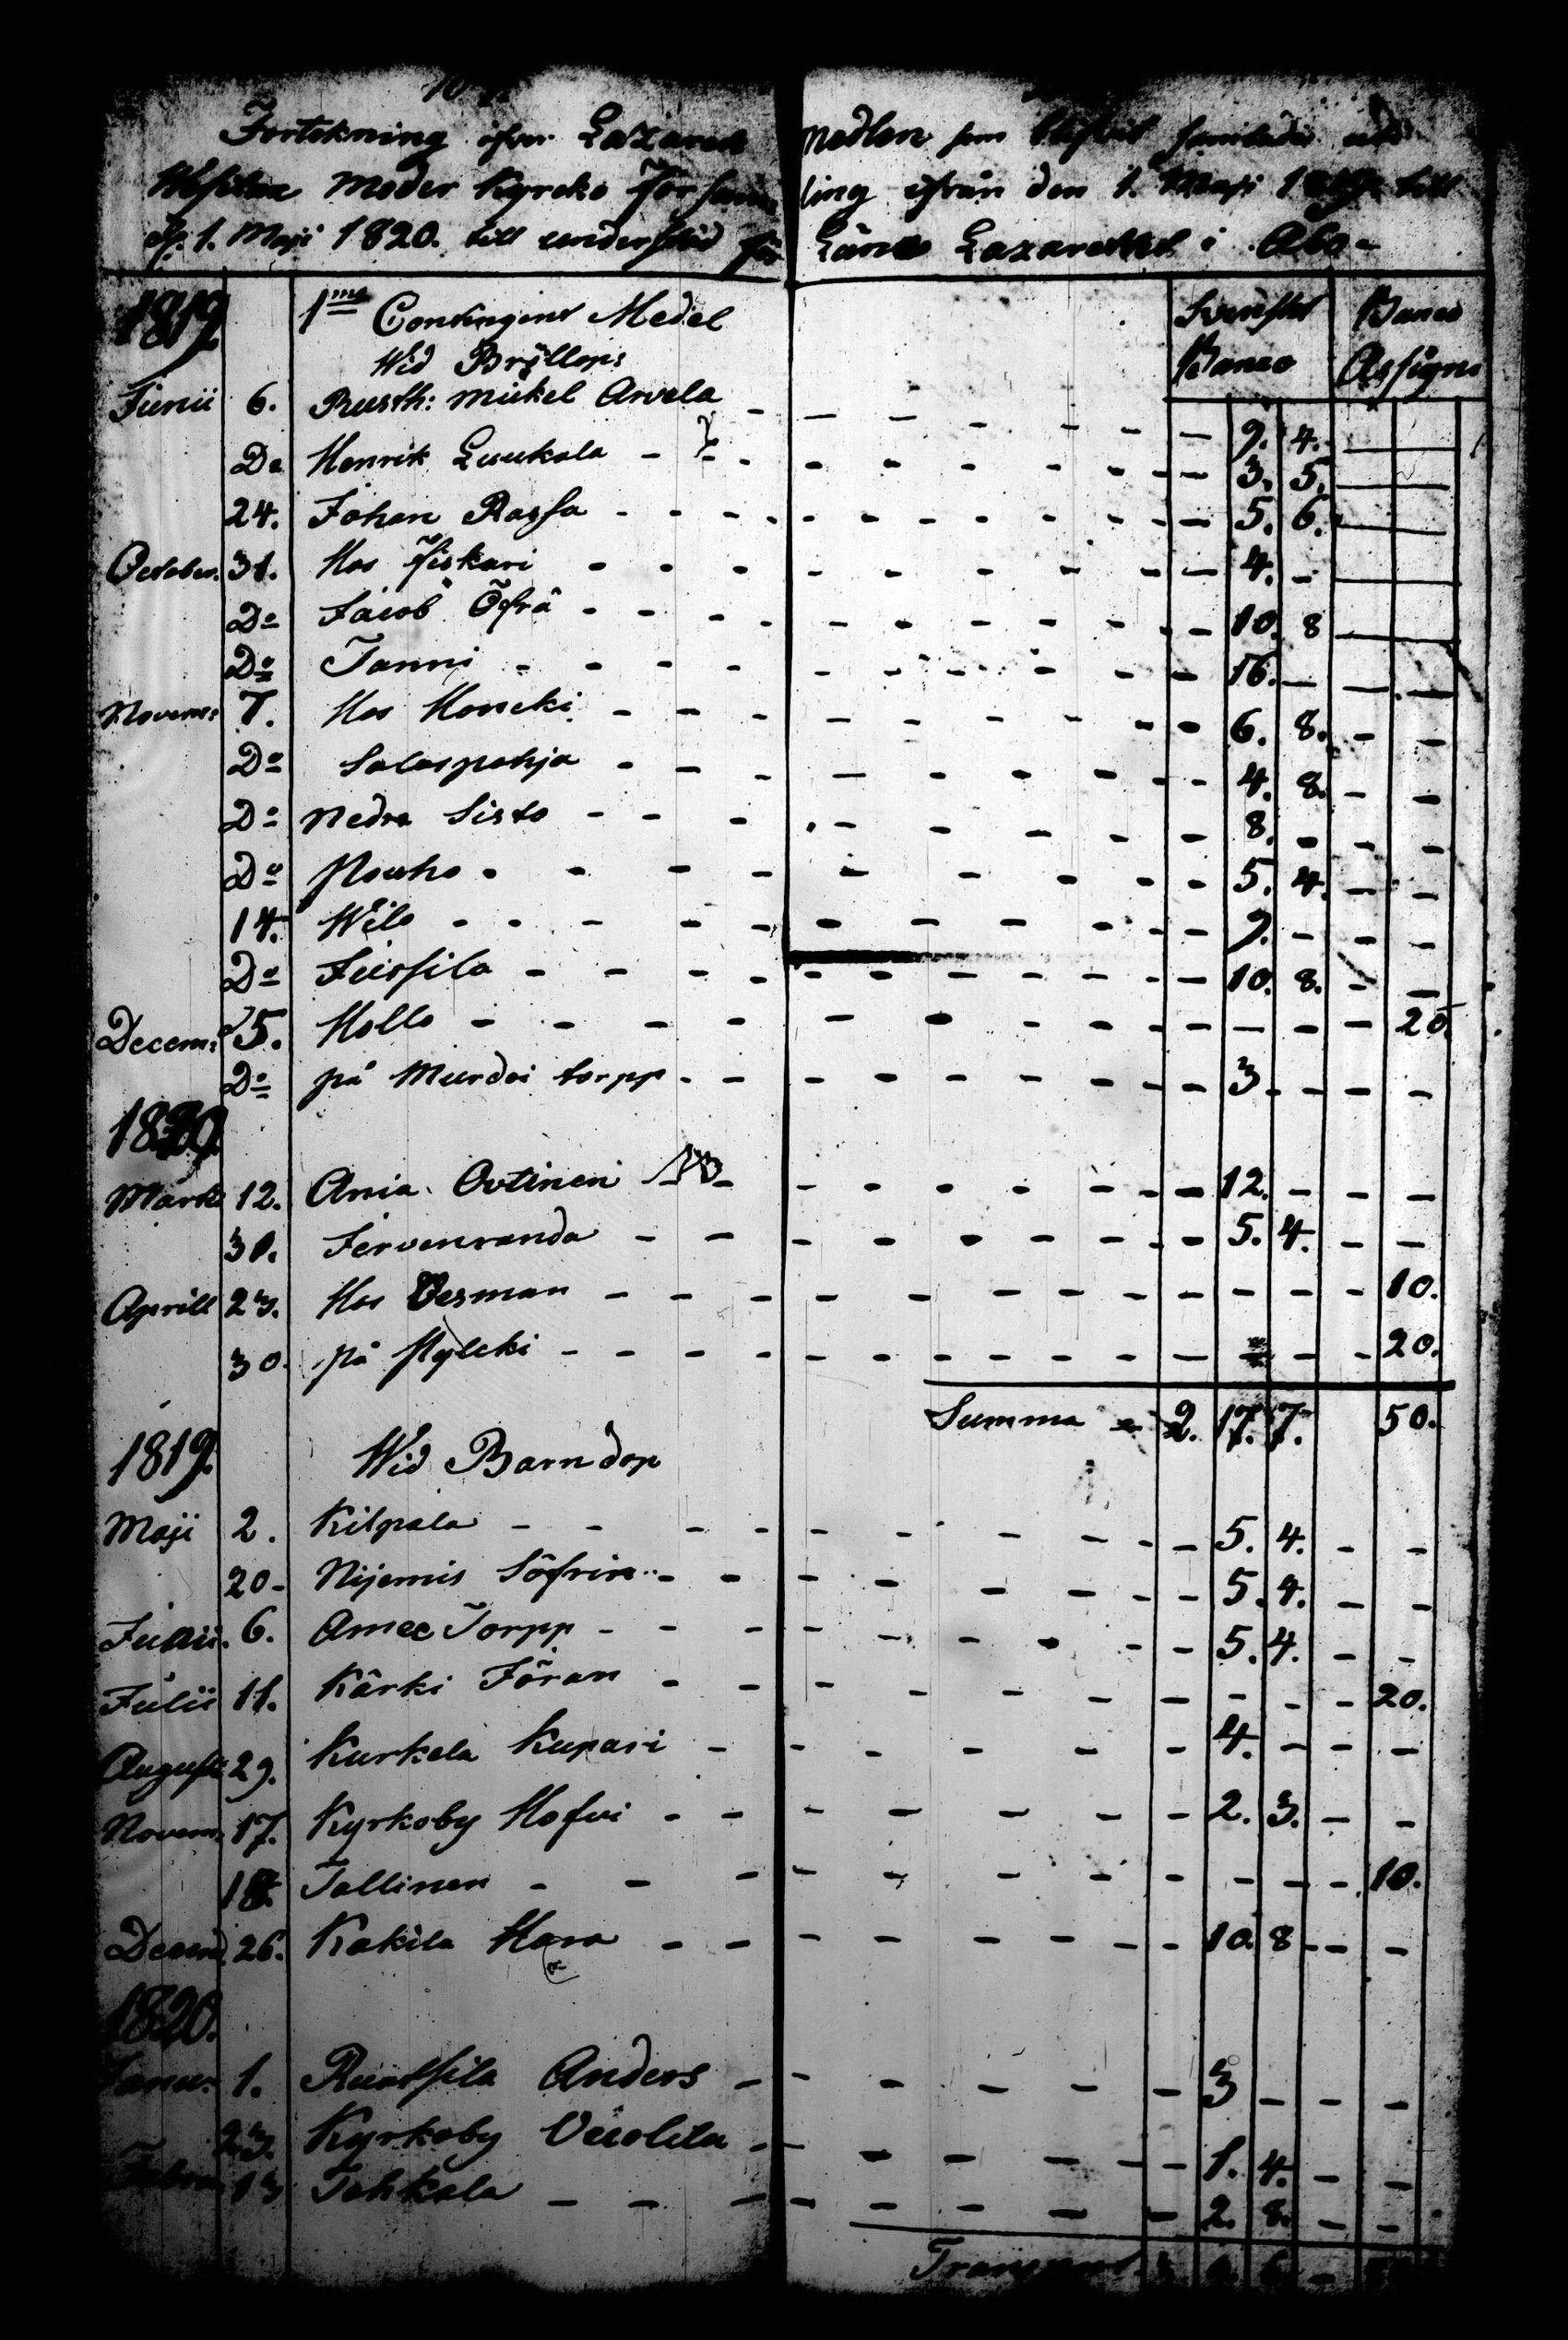 Förtekning öfver Lazarets Medlen som blifvit samlade uti
Moder Kyrcko Församling ifrån den 1. Maji 1819. till
d. 1. Maji 1820. till underståd för Läns Lazarettet i Åbo -
1819. 1mo Contingent Medel Svenskt Banco Banco Assign:
Wid Bröllop:
Junii 6. Rusth: Mickel Arvela - - - 9. 4. - -
Do Henrik Luukala - - - 3. 5. - -
24. Johan Rassa - - - 5. 6. - -
October. 31. Hos Fiskari - - - 4. - - -
Do Jacob Öfrå - - - 10. 8 - -
Do Tanni - - - 16. - - -
Novem: 7. Hos Honcki - - - 6. 8. - -
Do Salospohja - - - 4. 8. - -
Do Nedra Sisto - - - 8. - - -
Do Nouho - - - 5. 4. - -
14. Wilo - - - 9. - - -
Do Jussila - - - 10. 8. - -
Decem: 5. Hollo - - - - - - 20.
Do på Murdoi torpp - - - 3 - - -
1820.
Marti 12. Ania Ovtinen NB - - - 12. - - -
30. Jervenranda - - - 5. 4. - -
Aprill 23. Hos Oesman - - - - - - 10.
30. på Hylcki - - - - - - 20.
Summa - 2. 17. 7. 50.
1819. Wid Barndop
Maji 2. Kilpala - - - 5. 4. - -
20 - Nijemis Söfrin - - - 5. 4. - -
Junii. 6. Amee Torpp - - - 5. 4. - -
Julii 11. Kärki Jöran - - - - - - 20.
August 29. Kurkela Kupari - - - 4. - - -
Novem. 17. Kyrkoby Hofvi - - - 2. 3. - -
18. Tallinen - - - - - - 10.
Decem 26. Kakila Hara - - - 10. 8 - -
1820.
Janu: 1. Ruotsila Anders - - - 3 - - -
23. Kyrkoby Uuolila - - - 1. 4. - -
Febru 13 Tahkala - - - 2. 8. - -
Transport